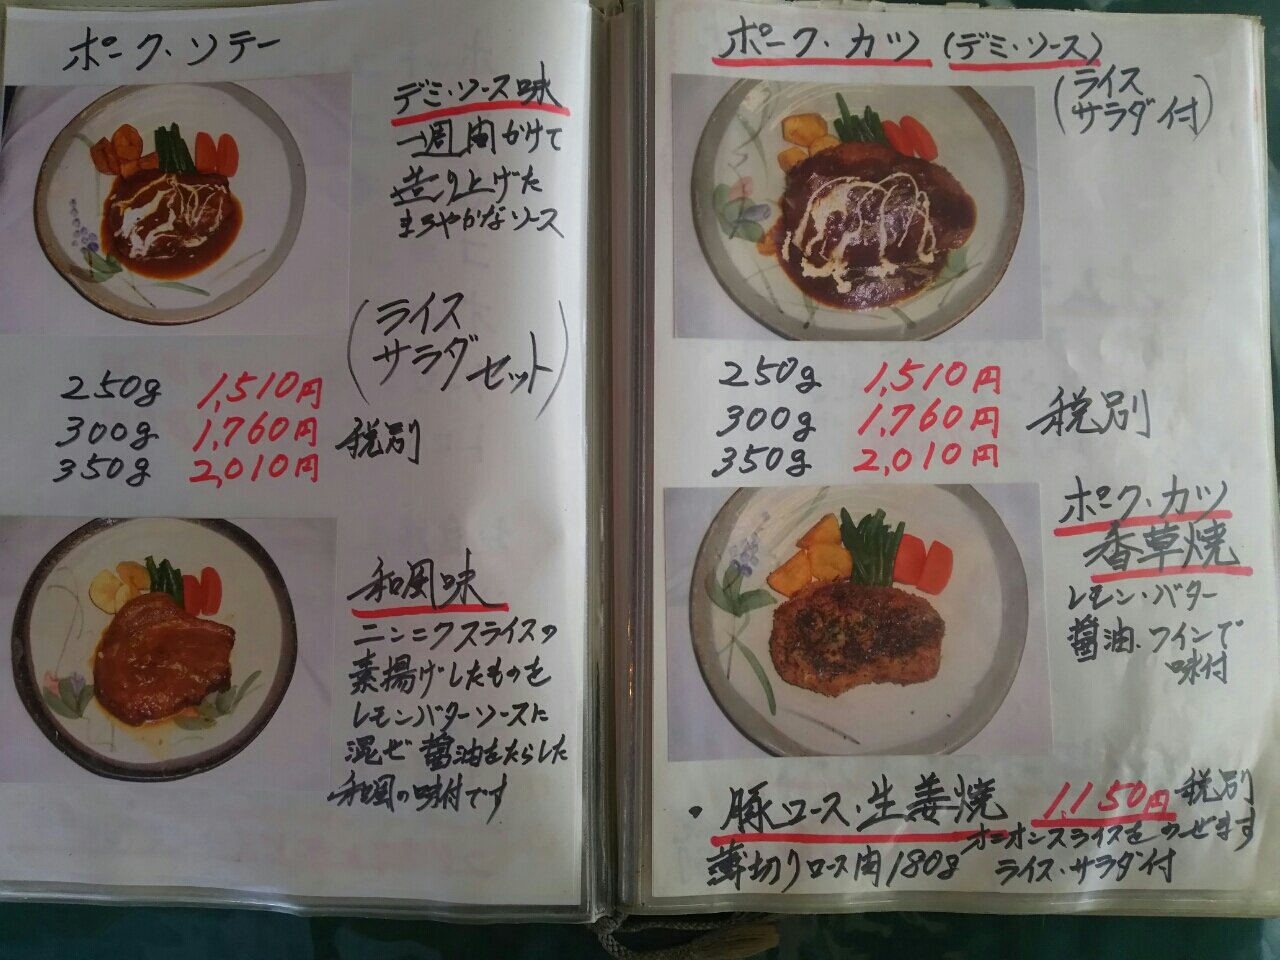 ポーク・ソテー
デミ・ソース味
一週間かけて
造り上げた
まろやかなソース
(ライス
サラダセット)
250g 1,510円
300g 1,760円 税別
350g 2,010円
和風味
ニンニクスライスの
素揚げしたものを
レモンバターソースに
混ぜ醤油をたらした
和風の味付です
ポーク・カツ(デミ・ソース)
(ライス
サラダ付)
250g 1,510円
300g 1,760円 税別
350g 2,010円
ポーク・カツ
香草焼
レモン・バター
醤油、ワインで
味付
・豚ロース・生姜焼 1,150円 税別
オニオンスライスをのせます
薄切りロース肉180g ライス・サラダ付